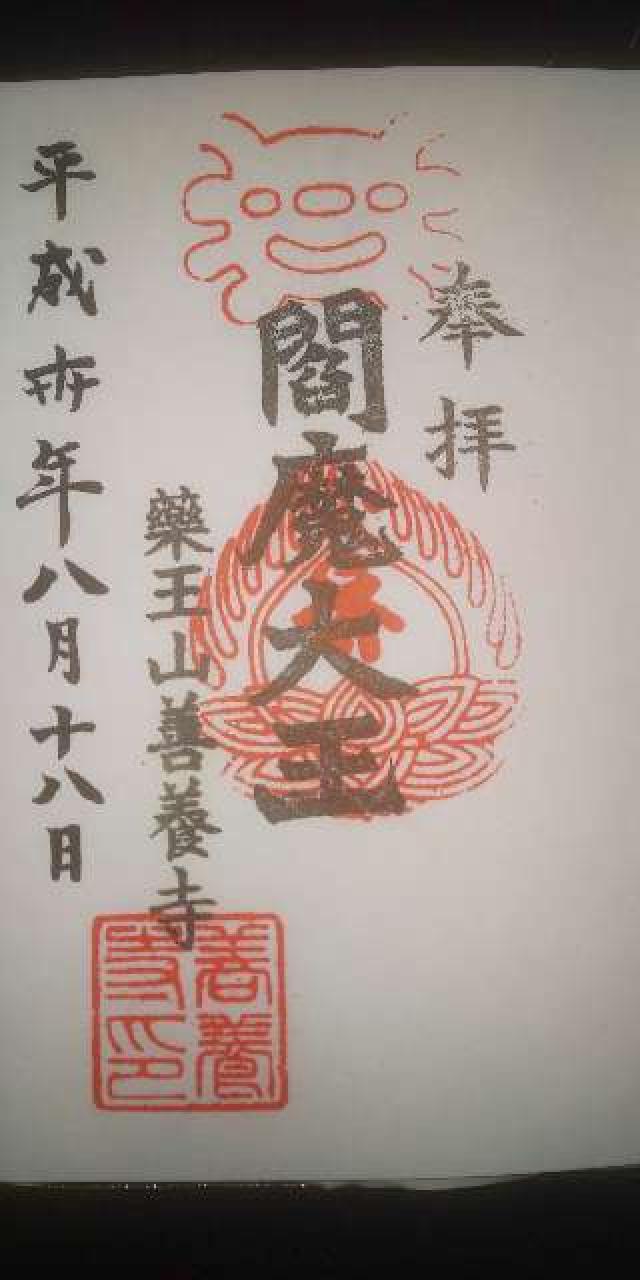 奉拝
閻魔大王
藥王山善養寺
平成卅年八月十八日
善養
寺印